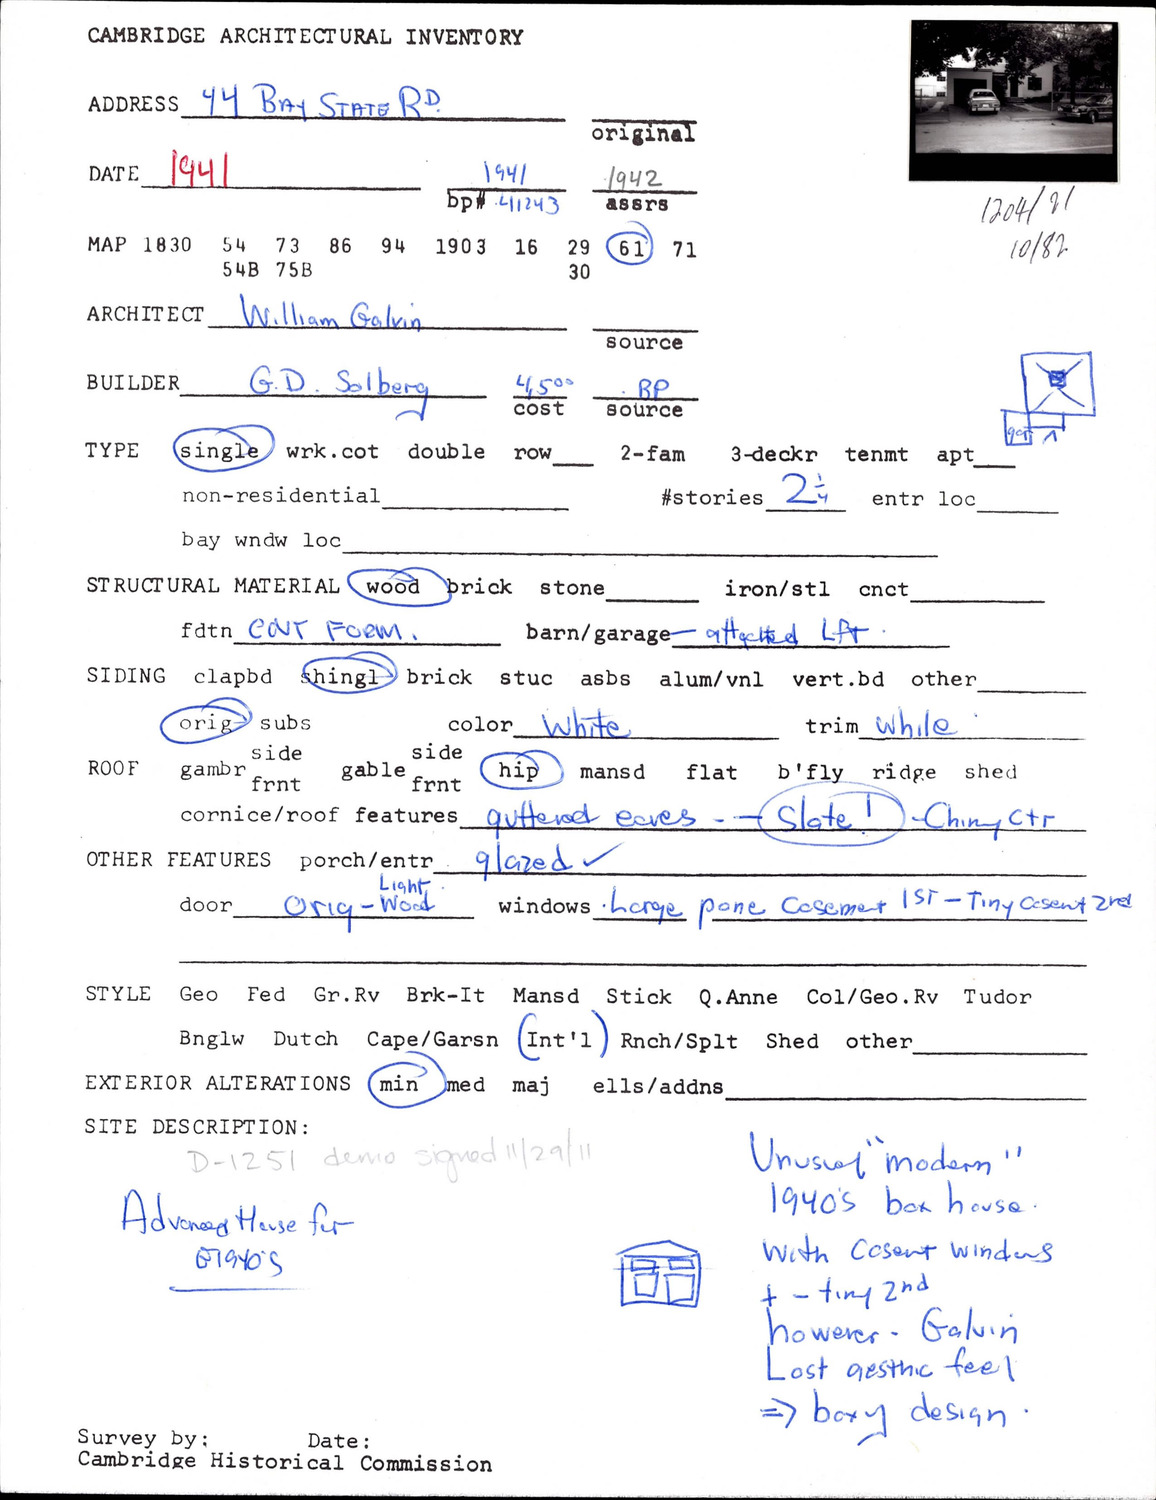 CAMBRIDGE ARCHITECTURAL INVENTORY
ADDRESS 44 BAY STATE RD.
original
DATE 1941 1941 1942
bp# 41243 assrs
1204/21
10/82
MAP 1830 54 73 86 94 1903 16 29 61 71
54B 75B 30
ARCHITECT William Galvin
source
BUILDER G.D. Solberg 4500 BP
cost source
gar
TYPE single wrk.cot double row 2-fam 3-deckr tenmt apt
non-residential #stories 2 1/4 entr loc
bay wndw loc
STRUCTURAL MATERIAL wood brick stone iron/stl cnct
fdtn CONT FORM. barn/garage - attached Lft.
SIDING clapbd shingl brick stuc asbs alum/vnl vert.bd other
orig subs color White trim While
ROOF gambr side frnt gable side frnt hip mansd flat b'fly ridge shed
cornice/roof features guttered eaves -- Slate! - Chimy Ctr
OTHER FEATURES porch/entr glazed ✓
Light
door Orig - Wood windows Large pane Casement 1ST - Tiny casent 2nd
STYLE Geo Fed Gr.Rv Brk-It Mansd Stick Q.Anne Col/Geo.Rv Tudor
Bnglw Dutch Cape/Garsn (Int'l) Rnch/Splt Shed other
EXTERIOR ALTERATIONS min med maj ells/addns
SITE DESCRIPTION:
D-1251 demo signed 11/29/11
Advanced House for
E1940's
Unusual "modern"
1940's box house.
With Casent windows
+ - tiny 2nd
however - Galvin
Lost aesthic feel
=> boxy design.
Survey by: Date:
Cambridge Historical Commission